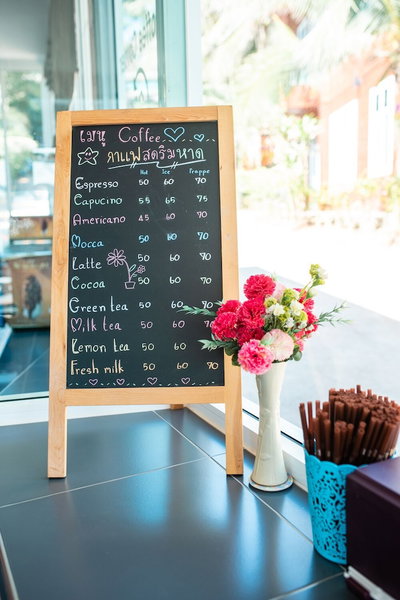 เมนู Coffee
กาแฟสดริมหาด
Hot Ice Frappe
Espresso 50 60 70
Capucino 55 65 75
Americano 45 60 70
Mocca 50 60 70
Latte 50 60 70
Cocoa 50 60 70
Green tea 50 60 70
Milk tea 50 60 70
Lemon tea 50 60 70
Fresh milk 50 60 70